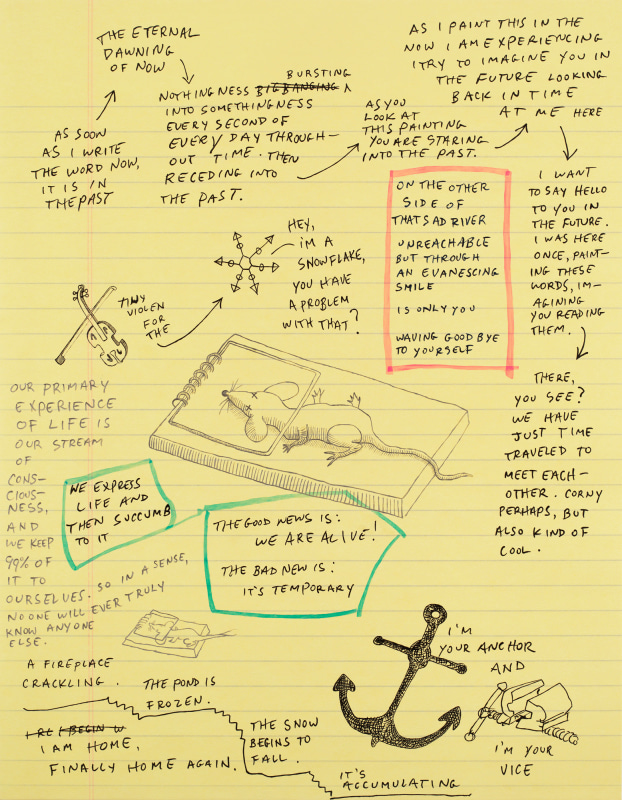 THE ETERNAL
DAWNING
OF NOW
AS SOON
AS I WRITE
THE WORD NOW,
IT IS IN
THE PAST
BURSTING
NOTHINGNESS BIG BANGING ∧
INTO SOMETHINGNESS
EVERY SECOND OF
EVERY DAY THROUGH-
OUT TIME. THEN
RECEDING INTO
THE PAST.
AS YOU
LOOK AT
THIS PAINTING
YOU ARE STARING
INTO THE PAST.
AS I PAINT THIS IN THE
NOW I AM EXPERIENCING
I TRY TO IMAGINE YOU IN
THE FUTURE LOOKING
BACK IN TIME
AT ME HERE
I WANT
TO SAY HELLO
TO YOU IN
THE FUTURE.
I WAS HERE
ONCE, PAINT-
ING THESE
WORDS, IM-
AGINING
YOU READING
THEM.
THERE,
YOU SEE?
WE HAVE
JUST TIME
TRAVELED TO
MEET EACH-
OTHER. CORNY
PERHAPS, BUT
ALSO KIND OF
COOL.
ON THE OTHER
SIDE OF
THAT SAD RIVER
UNREACHABLE
BUT THROUGH
AN EVANESCING
SMILE
IS ONLY YOU
WAVING GOODBYE
TO YOURSELF
TINY
VIOLEN
FOR THE
HEY,
I'M A
SNOWFLAKE,
YOU HAVE
A PROBLEM
WITH THAT?
OUR PRIMARY
EXPERIENCE
OF LIFE IS
OUR STREAM
OF
CONS-
CIOUS-
NESS,
AND
WE KEEP
99% OF
IT TO
OURSELVES. SO IN A SENSE,
NO ONE WILL EVER TRULY
KNOW ANYONE
ELSE.
WE EXPRESS
LIFE AND
THEN SUCCUMB
TO IT
THE GOOD NEWS IS:
WE ARE ALIVE!
THE BAD NEW IS:
IT'S TEMPORARY
I'M
YOUR ANCHOR
AND
I'M YOUR
VICE
A FIREPLACE
CRACKLING.
THE POND IS
FROZEN.
I BEGIN W
I AM HOME,
FINALLY HOME AGAIN.
THE SNOW
BEGINS TO
FALL.
IT'S
ACCUMULATING